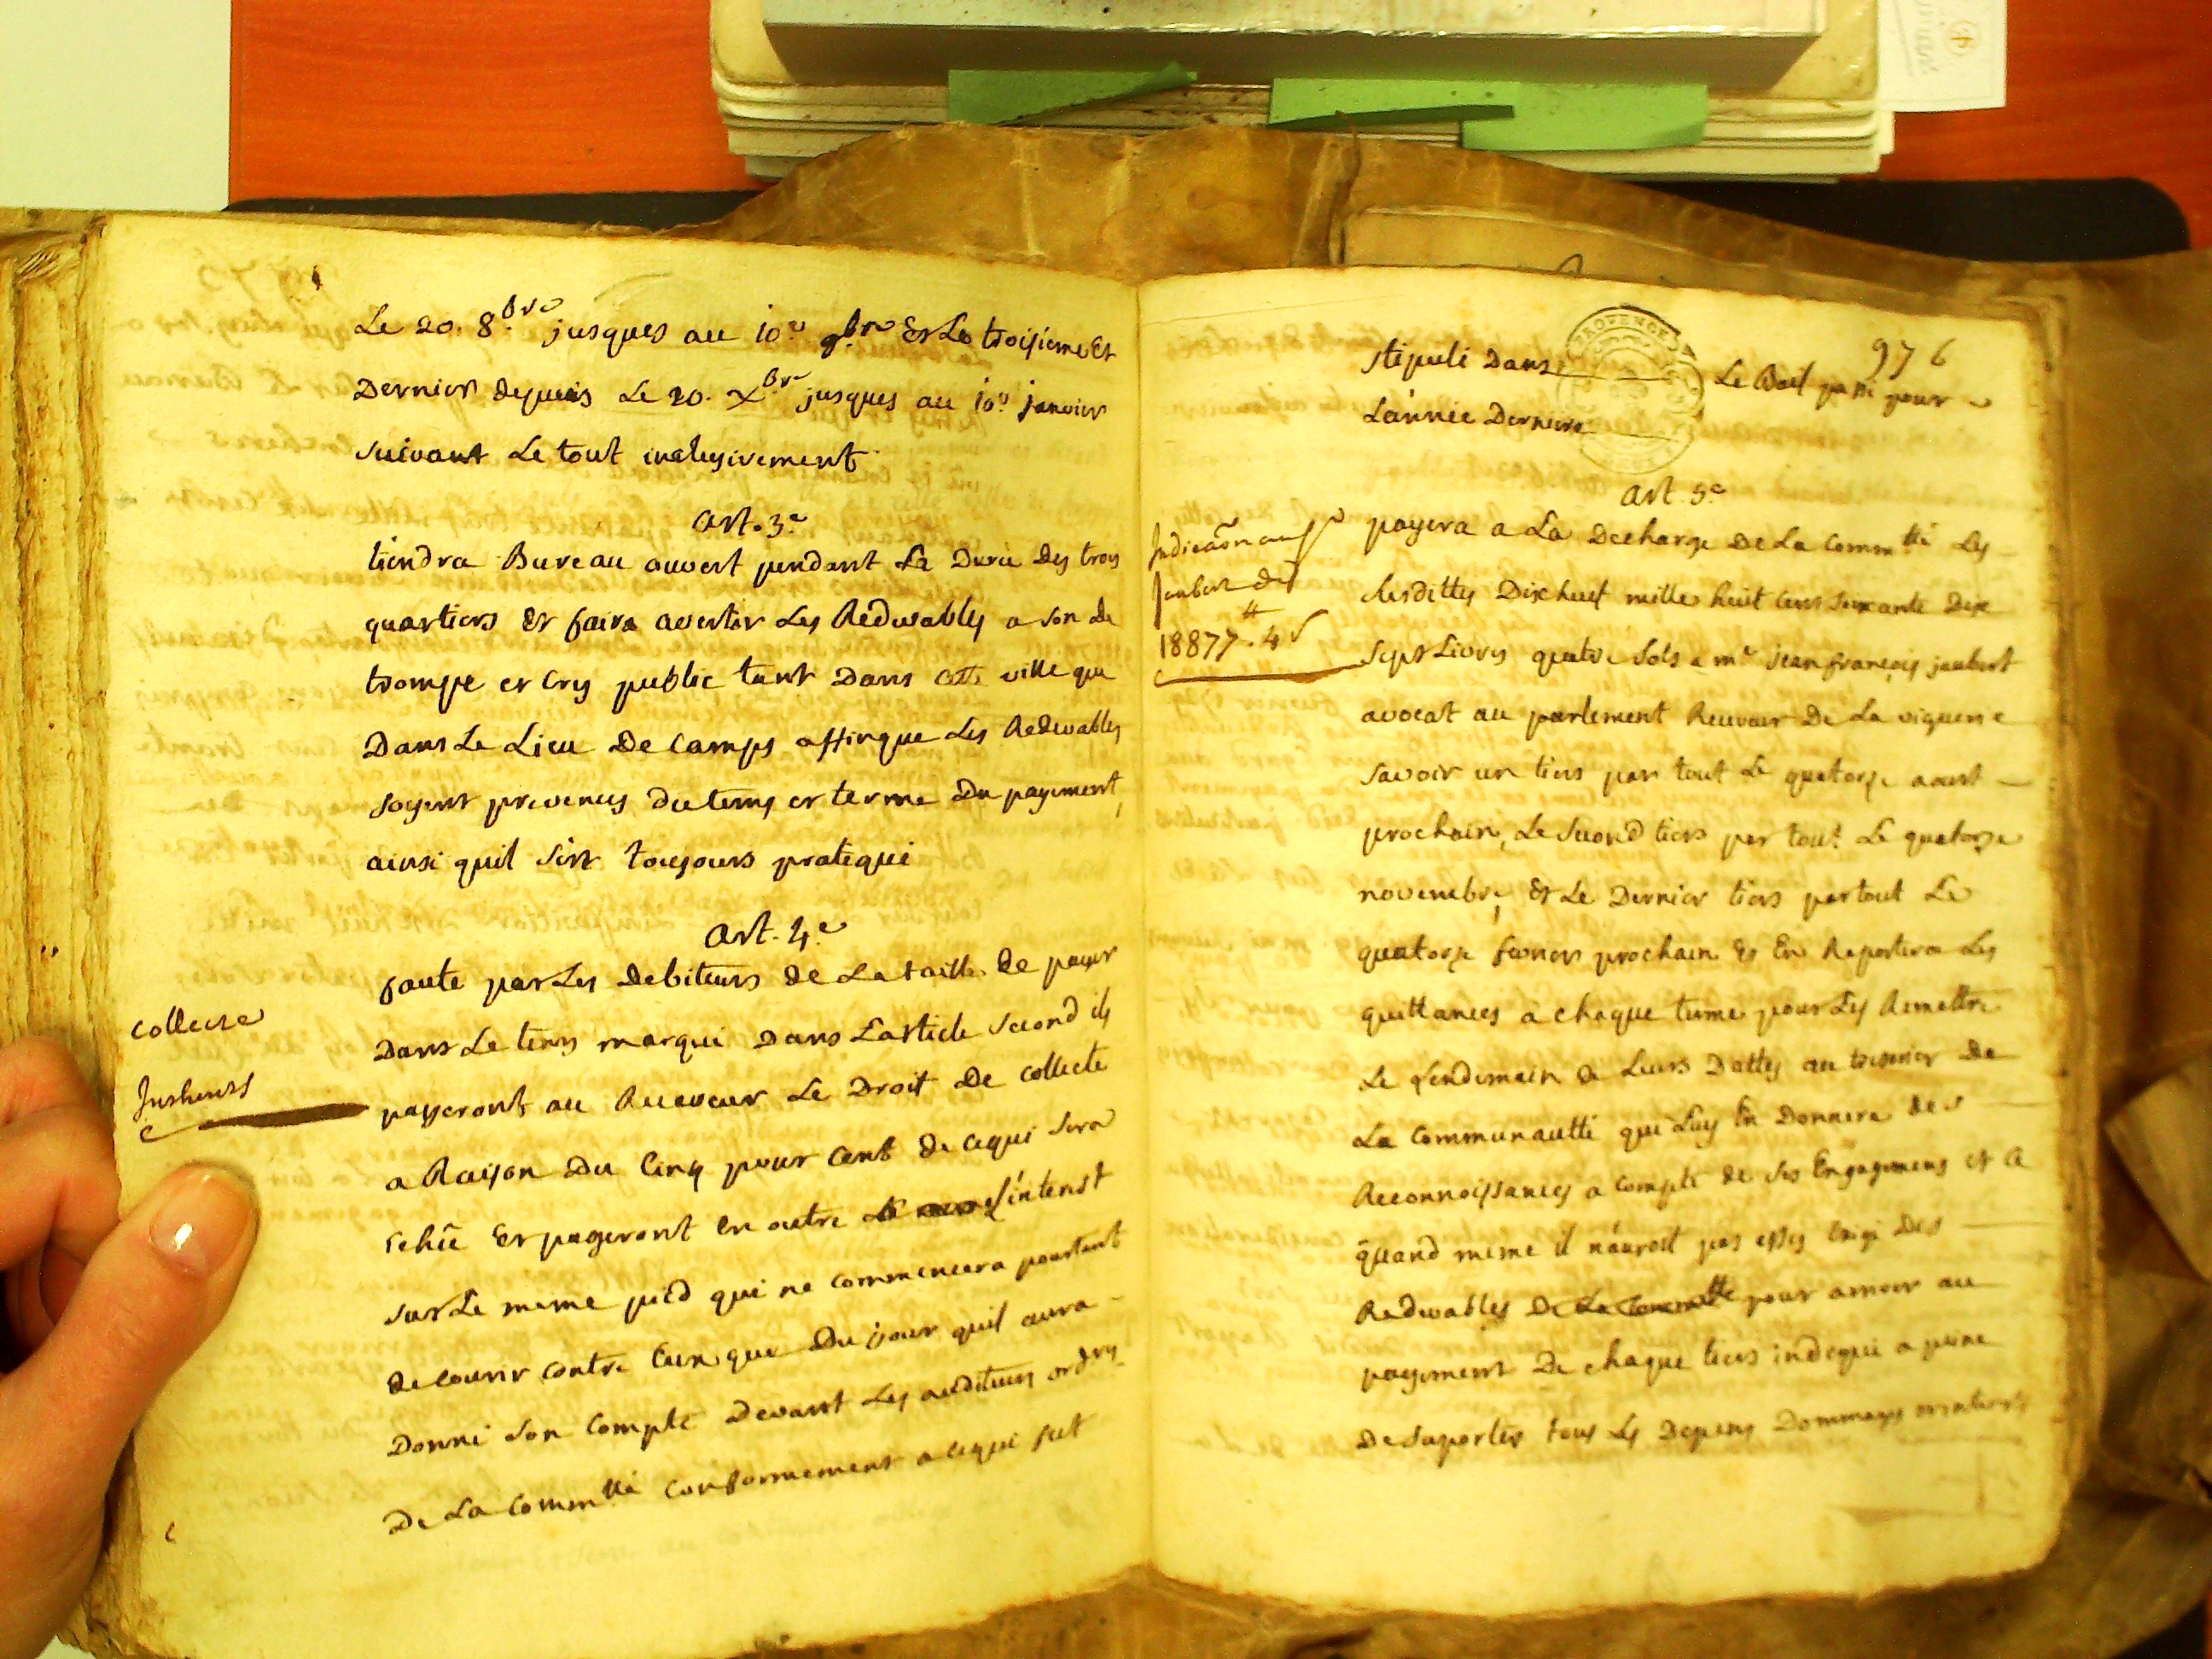 Le 20. 8.bre jusques au 10e 9bre Et Le troisieme Et
Dernier depuis Le 20. Xbre jusques au 10e janvier
suivant Le tout inclusivement
Art. 3e
tiendra Bureau ouvert pendant La Durée Des trois
quartiers Et faira avertir Les Redevables a son de
trompe et Cry public tant Dans cette ville que
Dans Le Lieu De Camps affinque Les Redevables
soyent prevenus du tems et terme Du payement,
ainsi quil s'est toujours pratiqué
Art. 4e
collecte
faute par Les Debiteurs de La taille de payer
Dans Le tems marqué Dans L'article second ils
Interests
payeront au Receveur Le Droit De collecte
a Raison Du Cinq pour Cent de cequi sera
echû Et payeront En outre L'interest
sur Le meme pied qui ne commencera pourtant
de courir contre que Du jour quil aura
Donné son Compte Devant Les auditeurs ordres
De La Commté Conformement a cequi fut
976
PROVENCE
stipulé Dans Le Bail passé pour
L'année Derniere
Art. 5e
Indicaõn au Sr
Jaubert de
18877tt. 4s
payera a La Decharge De La Commté Les
susdittes Dixhuit mille huit cens soixante Dix
sept Livres quatre sols a me jean françois jaubert
avocat au parlement Receveur De La viguerie
savoir un tiers par tout Le quatorze aoust
prochain, Le second tiers par tout Le quatorze
novembre, Et Le Dernier tiers par tout Le
quatorze fevrier prochain Et En Raportera Les
quittances a chaque terme pour Les Remettre
Le Lendemain de Leurs Dattes au tresorier De
La Communauté qui Luy En Donnera des
Reconnoissances a compte de ses Engagemens et ce
quand meme il n'auroit pas assés Exigé Des
Redevables De La Commté pour au
payement De chaque tiers indiqué a peine
De suporter tous Les Depens Dommages